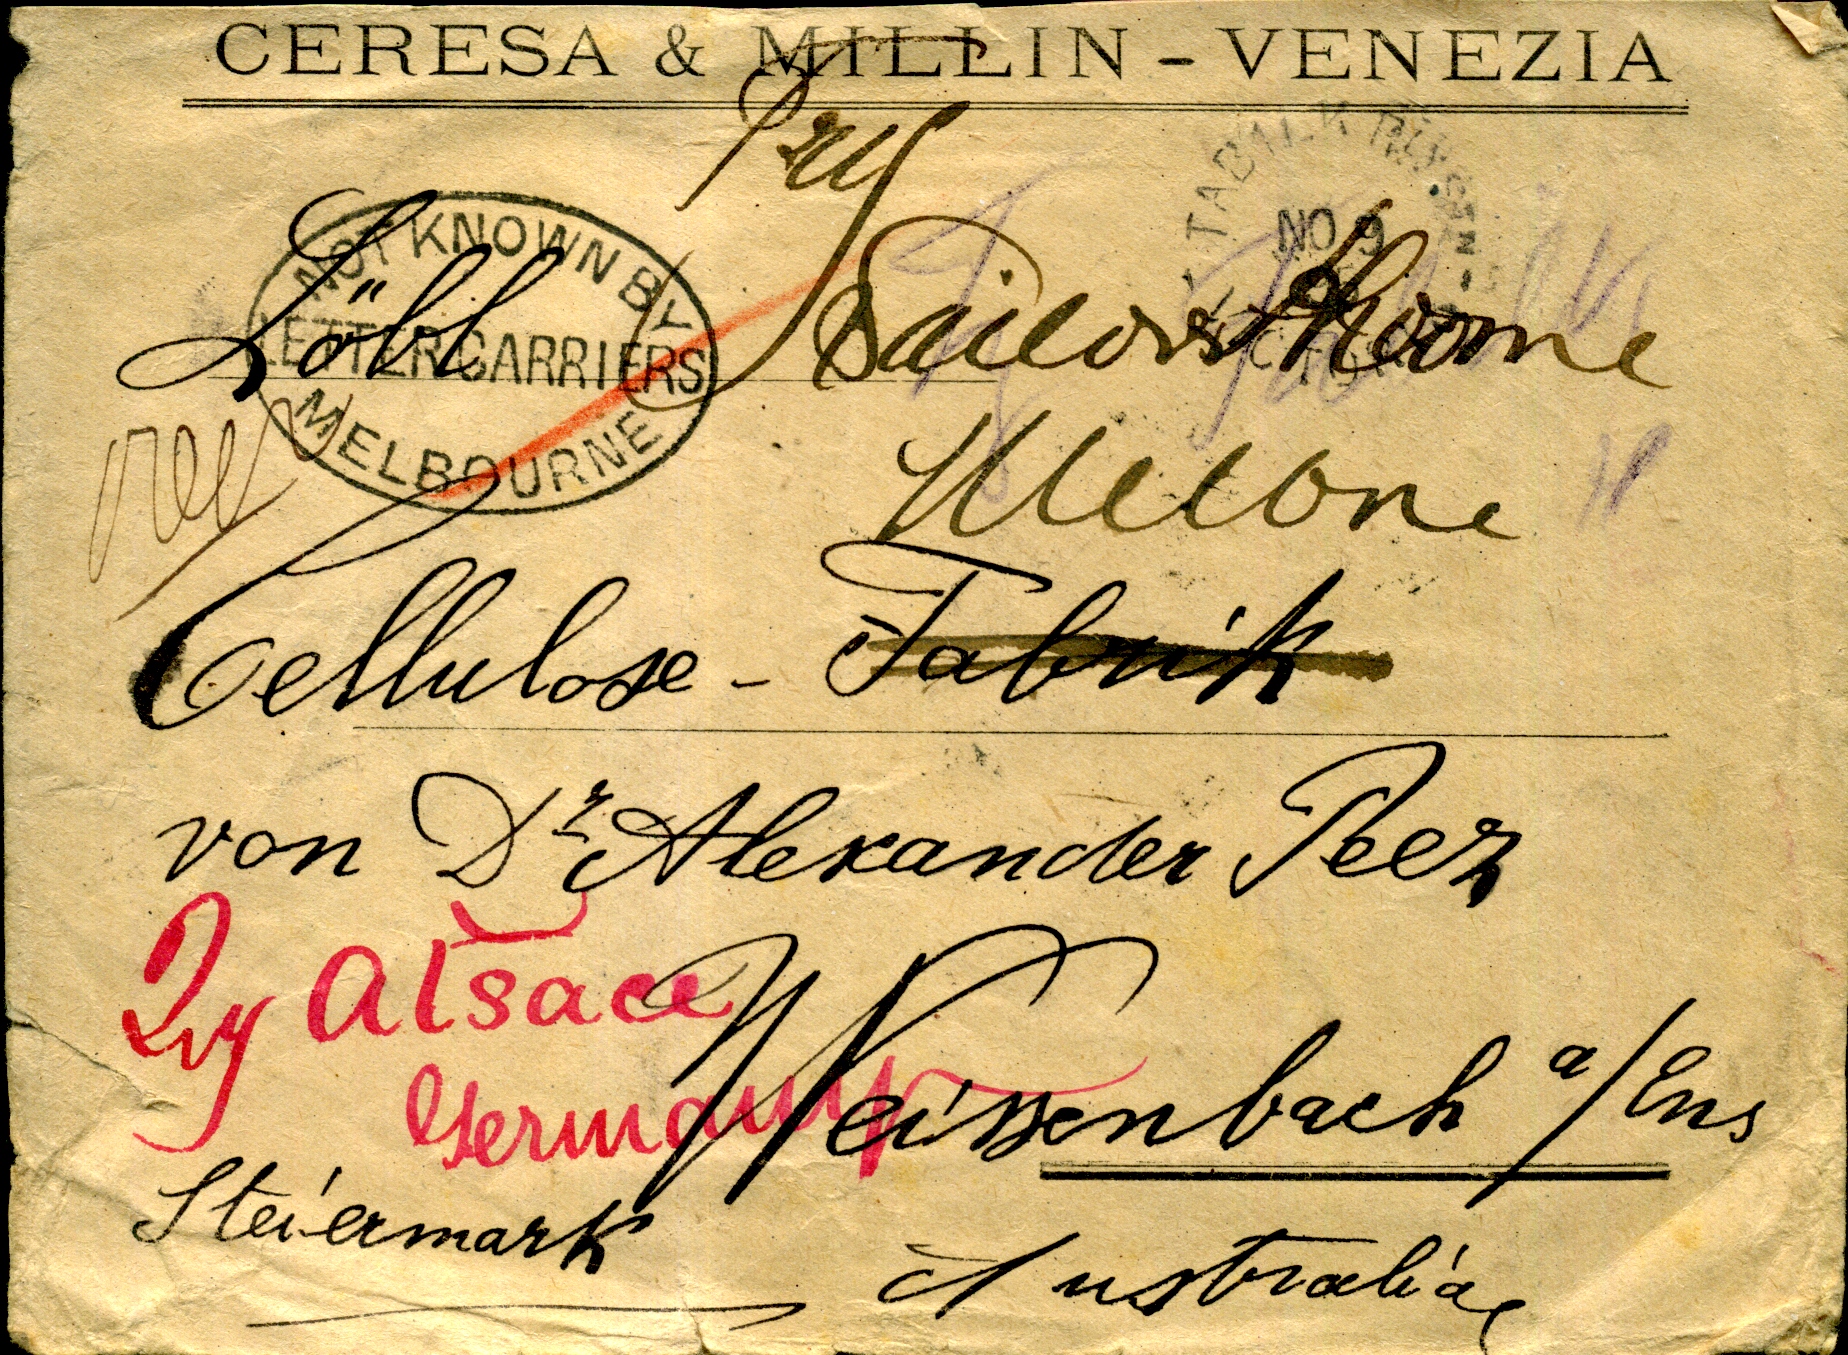 CERESA & MILLIN - VENEZIA
Try
Löbl Sailors Home
NOT KNOWN BY
LETTER CARRIERS
MELBOURNE
TABILK
NO 9
Melbne
Cellulose - Fabrik
von Dr Alexander Peez
Try Alsace
Germany
Weissenbach a/Ens
Steiermark
Australia